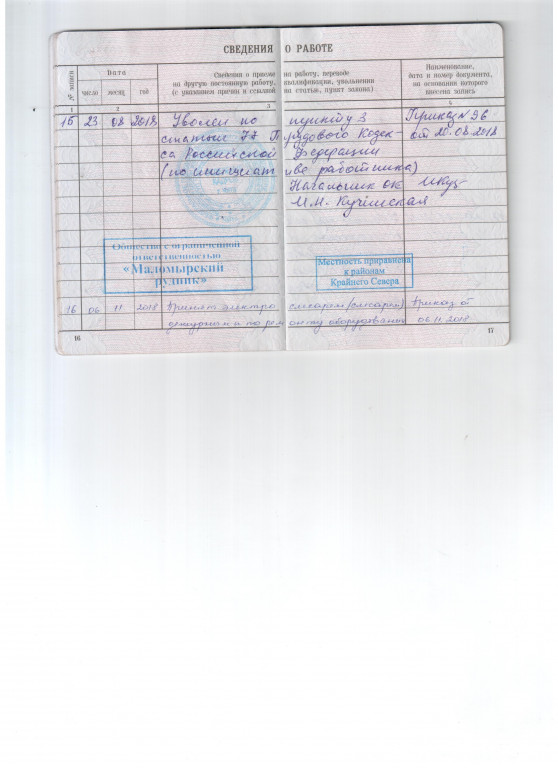 СВЕДЕНИЯ О РАБОТЕ
№ записи
Дата
число
месяц
год
Сведения о приеме на работу, переводе
на другую постоянную работу, квалификации, увольнении
(с указанием причин и ссылкой на статью, пункт закона)
Наименование,
дата и номер документа,
на основании которого
внесена запись
1 2 3 4
15 23 08 2018 Уволен по пункту 3 Приказ № 96
статьи 77 Трудового Кодек- от 20.08.2018
са Российской Федерации
(по инициативе работника)
Начальник ОК
М.Н.
Общество с ограниченной
ответственностью
«Маломырский
рудник»
Местность приравнена
к районам
Крайнего Севера
16 06 11 2018 Принят электрослесарем (слесарем) Приказ от
дежурным и по ремонту оборудования 06.11.2018
16
17